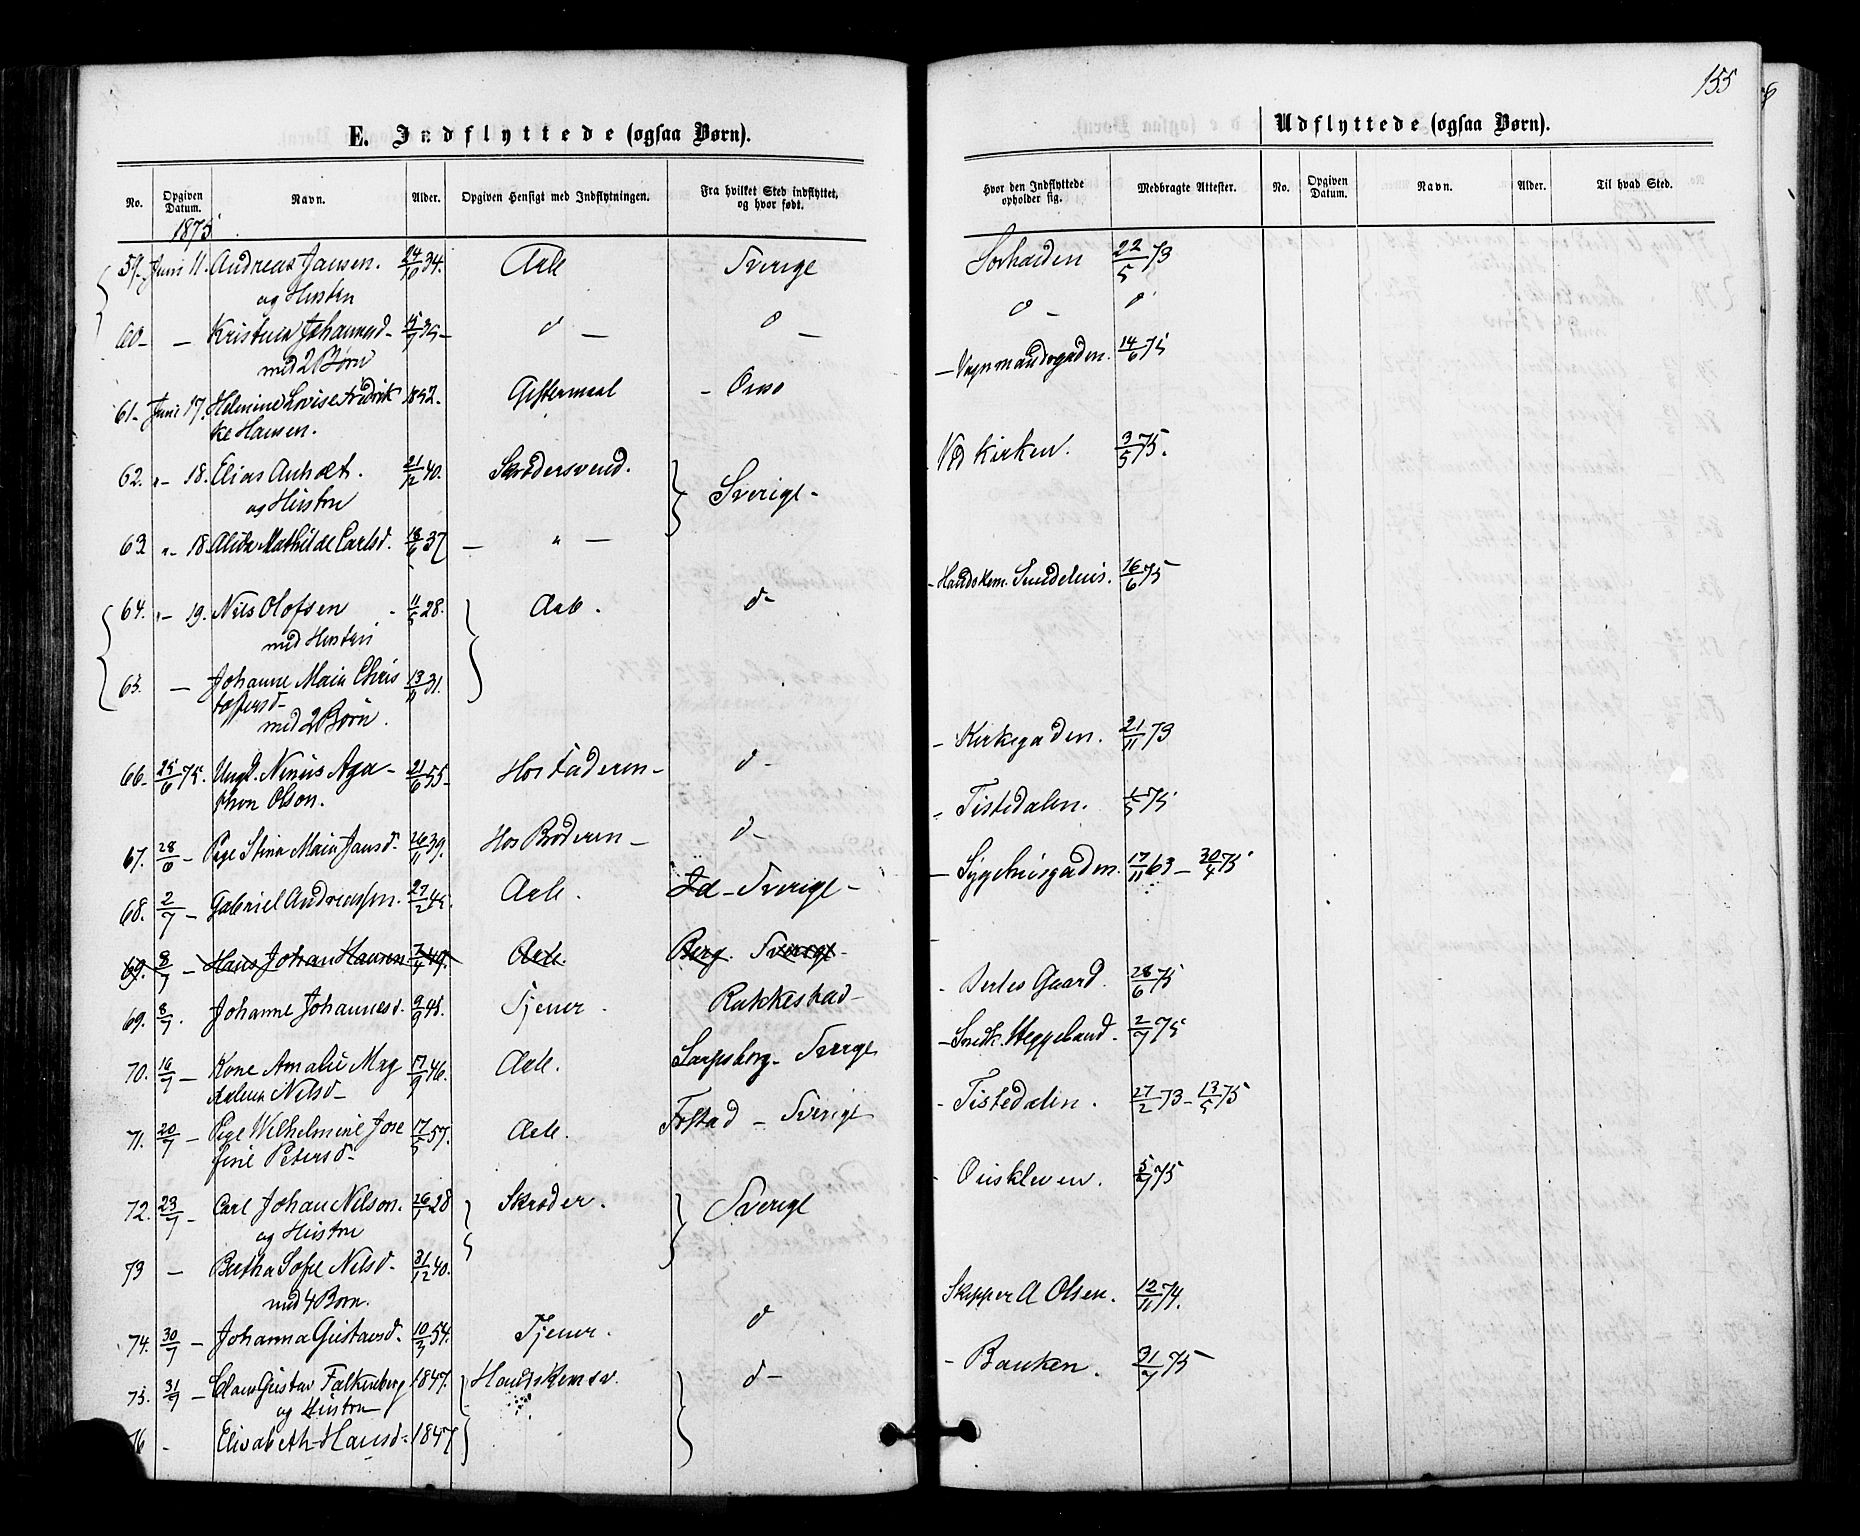 155
E. Indflyttede (ogsaa Børn).
Udflyttede (ogsaa Børn).
No. Opgiven Datum. Navn. Alder. Opgiven Hensigt med Indflytningen. Fra hvilket Sted indflyttet, og hvor født. Hvor den Indflyttede opholder sig. Medbragte Attester. No. Opgiven Datum. Navn. Alder. Til hvad Sted.
1875
59. Juni 11. Andreas Jansen. 24/10 34. Arb. Sverige 22/5 73
og Hustru
60 — Kristina Johannesd 39 — d — d —
med 2 Børn
61. Juni 17. Helmine Lovise Fredrik 1852. Giftermaal — Onsø — Vognmandsgaden. 14/6 75
ke Hansen.
62. „ — 18. Elias Anholt. 21/12 40. Skrædersvend. Sverige — Ved Kirken. 3/5 75.
og Hustru
63 „ — 18. Alida Mathilde Carlsd. 18/6 37 — „ —
64. „ — 19. Nils Olofsen 11/5 28. Arb. d — Handskem. 16/6 75
med Hustru
65. — Johanne Maria Chris 13/11 31.
toffersd —
med 2 Børn.
66 — 25/6 75. Ungk. Ninus Aga — 21/6 55 — Hos Faderen — d — Kirkegaden. 21/11 73
thon Olson.
67. 28/6 — Pige Stina Maria Jansd. 26/11 39. Hos Broderen — d — Tistedalen. 1/5 75
68. 2/7 — Gabriel Andreassen. 27/2 45. Arb. Id — Sverige — Sygehusgaden. 17/11 63 — 30/4 75
69. 8/7 — Hans Johan Hansen 7/4 49. Arb. Berg. Sverige —
69. 8/7. Johanne Johannesd. 9/9 48. Tjener. Rakkestad — Gaard 28/6 75
70. 16/7 — Kone Amalie Mag 17/9 46. Arb. Sarpsborg — Sverige — Smedk. Heggelund. 2/7 75
dalena Nilsd —
71. 20/7 — Pige Wilhelmine Jose 17/5 57. Arb. Frstad — Sverige — Tistedalen. 27/2 73 — 13/5 75
fine Petersd —
72. 23/7 — Carl Johan Nilson. 26/1 28 Skræder. Sverige 5/7 75
og Hustru
73 — Bertha Sofie Nilsd — 31/12 40.
med 4 Børn.
74. 30/7 — Johanna Gustavsd. 10/3 54. Tjener. d Skipper A Olsen. 12/11 74.
75. 31/7 — Claus Gustav Falkenberg 1847. Handskemsv. d — Banken. 31/7 75
og Hustru
76 — Elisabeth Hansd — 1847